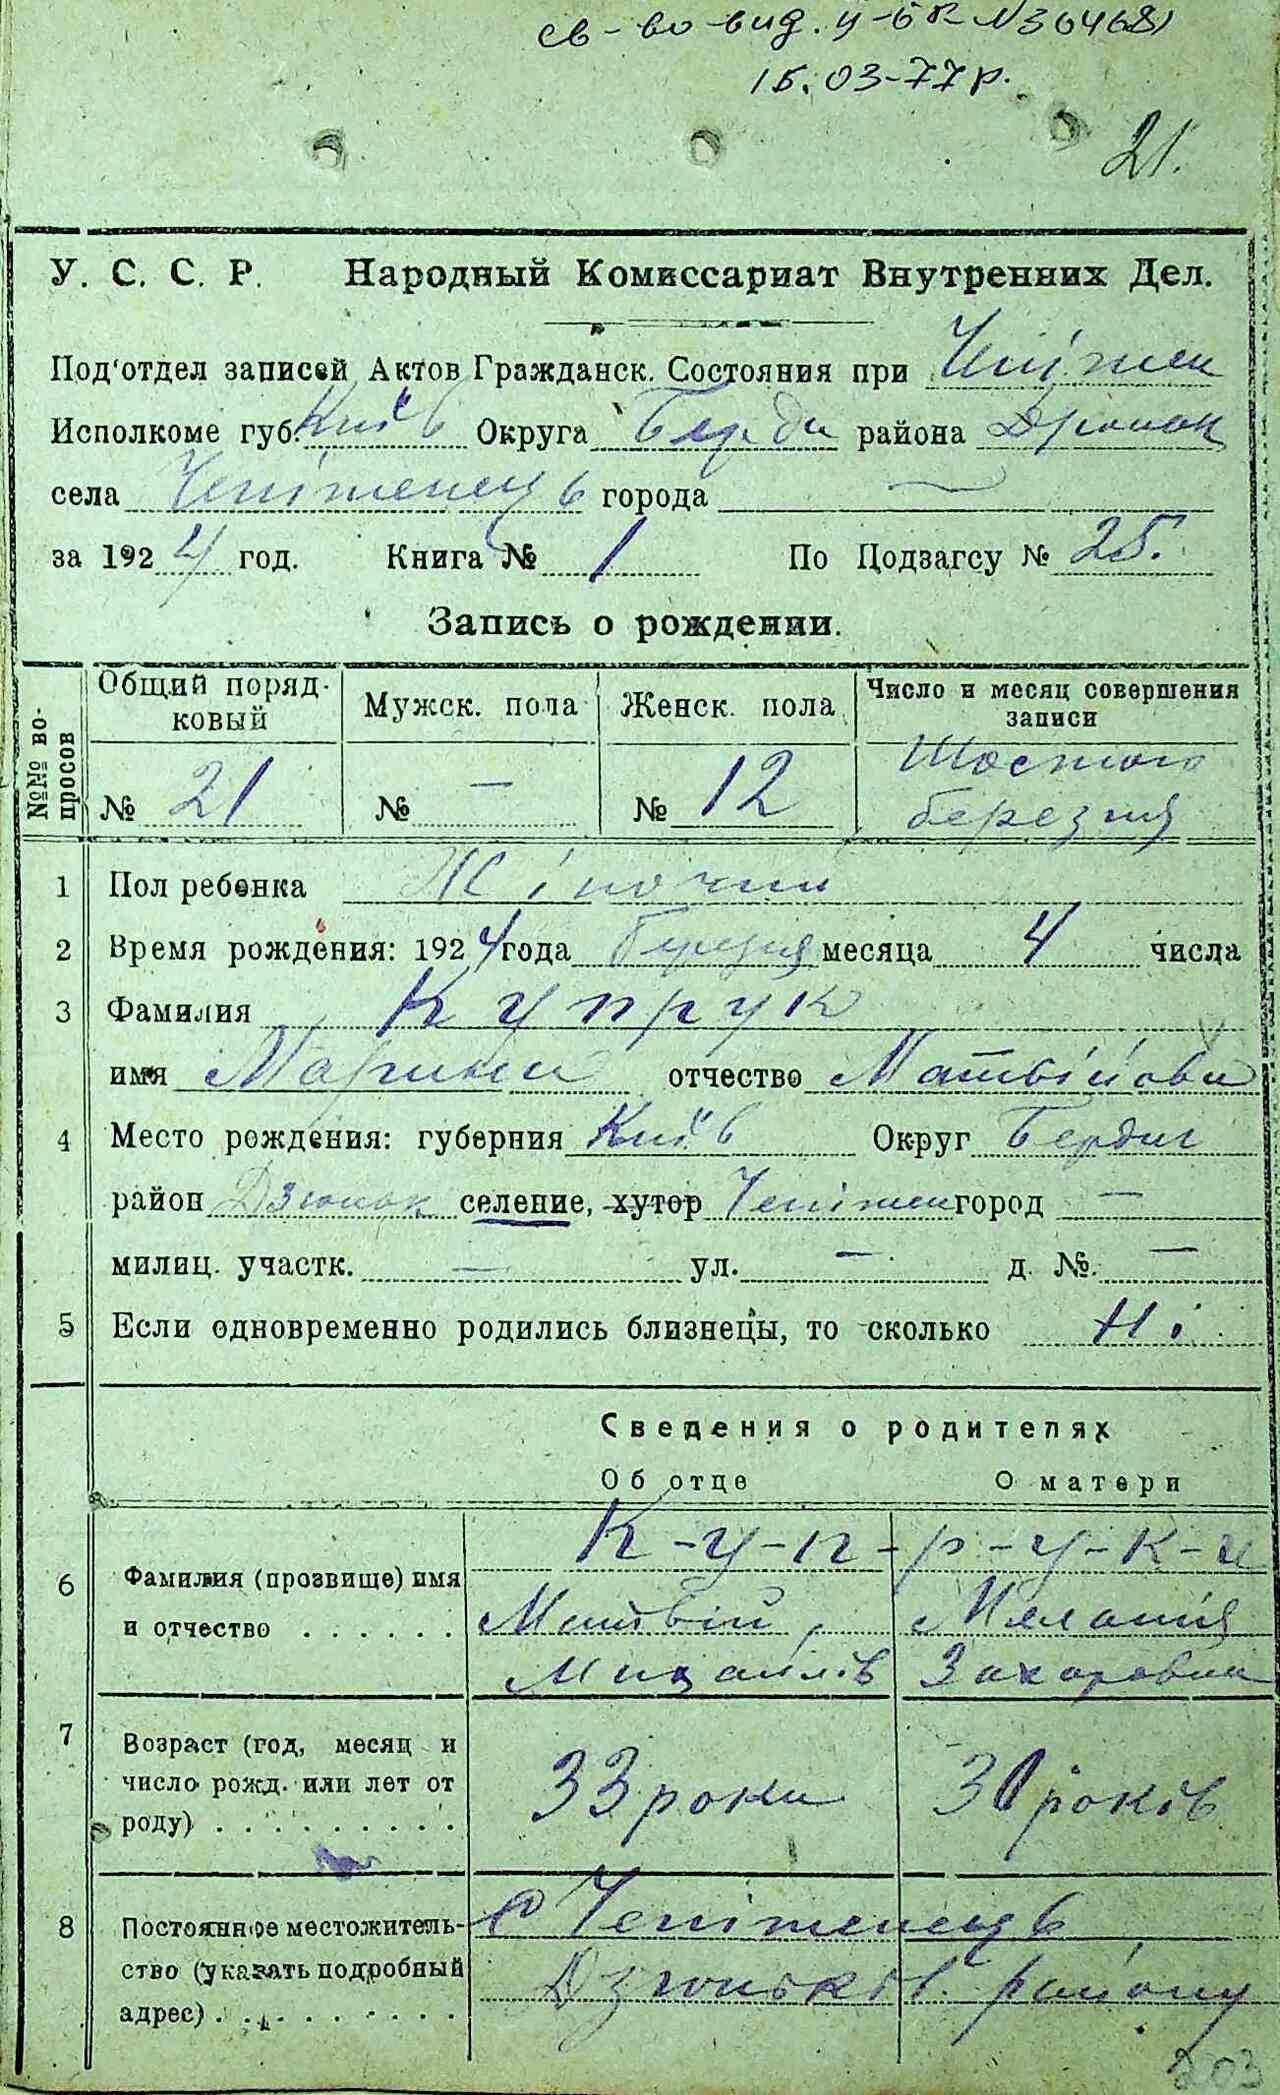 св-во вид. у-бк № 30468)
15.03-77р.
21.
У. С. С. Р. Народный Комиссариат Внутренних Дел.
Под'отдел записей Актов Гражданск. Состояния при
Исполкоме губ. Київ Округа Берди района Дзюньк
села города —
за 1924 год. Книга № 1 По Подзагсу № 25.
Запись о рождении.
№№ вопросов
Общий порядковый Мужск. пола Женск. пола Число и месяц совершения записи
№ 21 № — № 12 Шостого березня
1 Пол ребенка Жіночий
2 Время рождения: 1924 года Березня месяца 4 числа
3 Фамилия Купрук
имя отчество Матвіїовна
4 Место рождения: губерния Київ Округ Бердич
район Дзюньк селение, хутор город —
милиц. участк. — ул. — д. №. —
5 Если одновременно родились близнецы, то сколько Ні.
Сведения о родителях
Об отце О матери
К-у-п-р-у-к-и
6 Фамилия (прозвище) имя и отчество . . . . . . Матвій Мелания
Захаровна
7 Возраст (год, месяц и число рожд. или лет от роду) . . . . . . . . . 33 роки 30 років
8 Постоянное местожительство (указать подробный адрес) . . . . . . . . .
Дзюньків. району
203